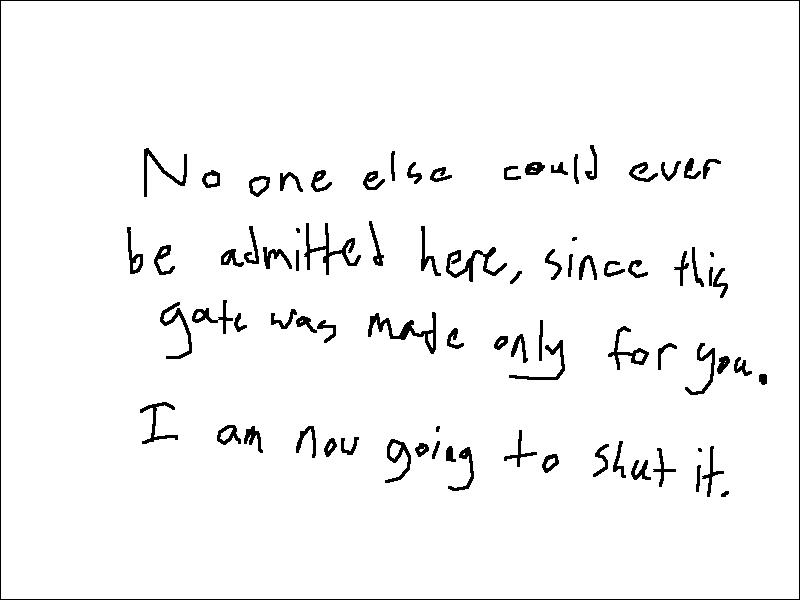 No one else could ever
be admitted here, since this
gate was made only for you.
I am now going to shut it.